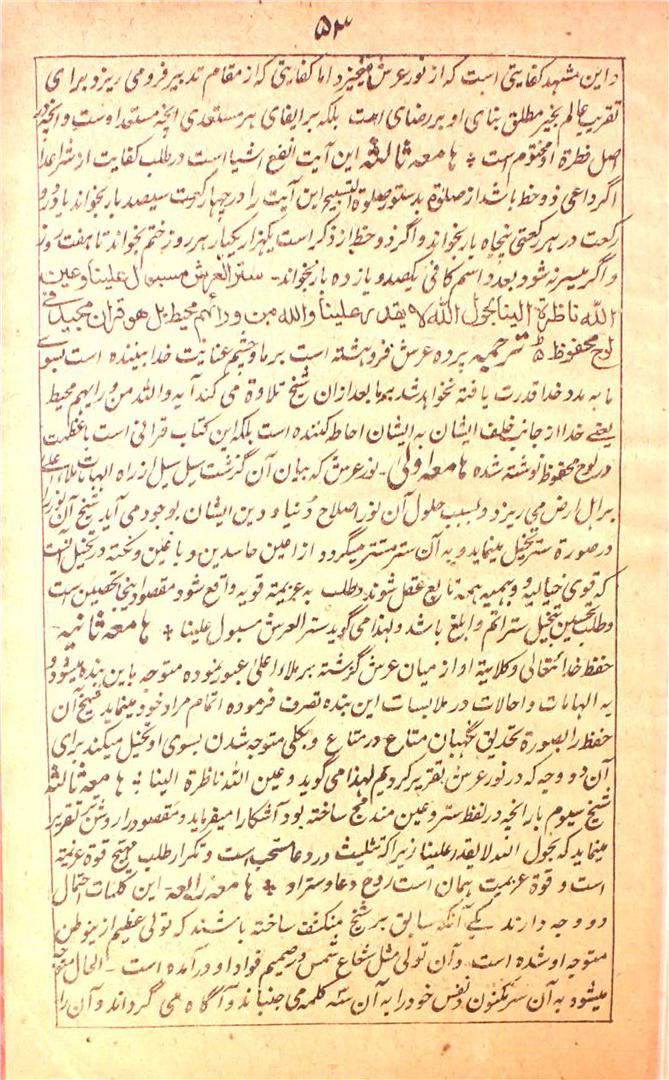 ۵۳
داین مشهد کفایتی است که از نور عرش میخیزد اما کفایتی که از مقام تدبیر فرو می ریزد برای
تقریب عالم بخیر مطلق بنای او بر رضای است بلکه بر ایفای هر مستعدی آنچه مستعد اوست و آنچه در
اصل فطرة او مختوم است ؛ هامعه ثالثه این آیت انفع اشیا است در طلب کفایت از شر اعدا
اگر داعی ذو حظ باشد از صلوة بدستور صلوة التسبیح این آیت را در چهار رکعت سیصد بار بخواند یا در دو
رکعت در هر رکعتی پنجاه بار بخواند و اگر ذو حظ از ذکر است یکهزار یکبار هر روز ختم بخواند تا هفت روز
و اگر میسر نه شود بعدد اسم کافی یکصد و یازده بار بخواند - ستر العرش مسبول علینا وعین
الله ناظرة الینا بحول الله لا یقدر علینا والله من ورائهم محیط بل هو قرآن مجید فی
لوح محفوظ ترجمه پرده عرش فروهشته است بر ما و چشم عنایت خدا بیننده است بسوی
ما به مدد خدا قدرت یافته نخواهد شد بر ما بعد ازان شیخ تلاوة می کند آیه والله من ورایهم محیط
یعنے خدا از جانب خلف ایشان به ایشان احاطه کننده است بلکه این کتاب قرآنی است باعظمت
در لوح محفوظ نوشته شده هامعه اولی - نور عرش که بیان آن گذشت سیل سیل از راه الهامات ملاء اعلی
بر اهل ارض می ریزد و بسبب حلول آن نور اصلاح دنیا و دین ایشان بوجود می آید شیخ آن نور را
در صورة ستر تخییل مینماید و به آن ستر مستتر میگردد از اعین حاسدین و باغین و نکته در تخییل آنست
که قوی خیالیه و وهمیه همه تابع عقل شوند و طلب به عزیمة قویه واقع شود مقصود اینجا تحصین است
و طلب تحصین بتخییل ستر اتم و ابلغ باشد و لهذا می گوید ستر العرش مسبول علینا ؛ هامعه ثانیه -
حفظ خدا تعالی و کلاءیة او از میان عرش گزشته بر ملاء اعلی عبور نموده متوجه باین بنده میشود و
به الهامات و احالات در ملابسات این بنده تصرف فرموده اتمام مراد خود مینماید شیخ آن
حفظ را بصورة تحدیق نگهبان متاع در متاع و بکلی متوجه شدن بسوی او تخییل میکند برای
آن دو وجه که در نور عرش تقریر کردیم لهذا می گوید وعین الله ناظرة الینا ؛ هامعه ثالثه
شیخ سیوم بار آنچه در لفظ ستر و عین مندمج ساخته بود آشکارا میفرماید و مقصود را روشنتر تقریر
مینماید که بحول الله لا یقدر علینا زیرا که تثلیث در دعا مستحب است و تکرار طلب مهیج قوة عزیمة
است و قوة عزیمت همان است روح دعا و ستر او ؛ هامعه رابعه این کلمات احتمال
دو وجه دارند یکے آنکه سابق بر شیخ منکشف ساخته باشند که تولی عظیم از موطن
متوجه او شده است و آن تولی مثل شعاع شمس در صمیم فواد او در آمده است - الحال متوجه
میشود به آن سر مکنون و نفس خود را به آن سه کلمه می جنباند و آگاه می گرداند و آن را